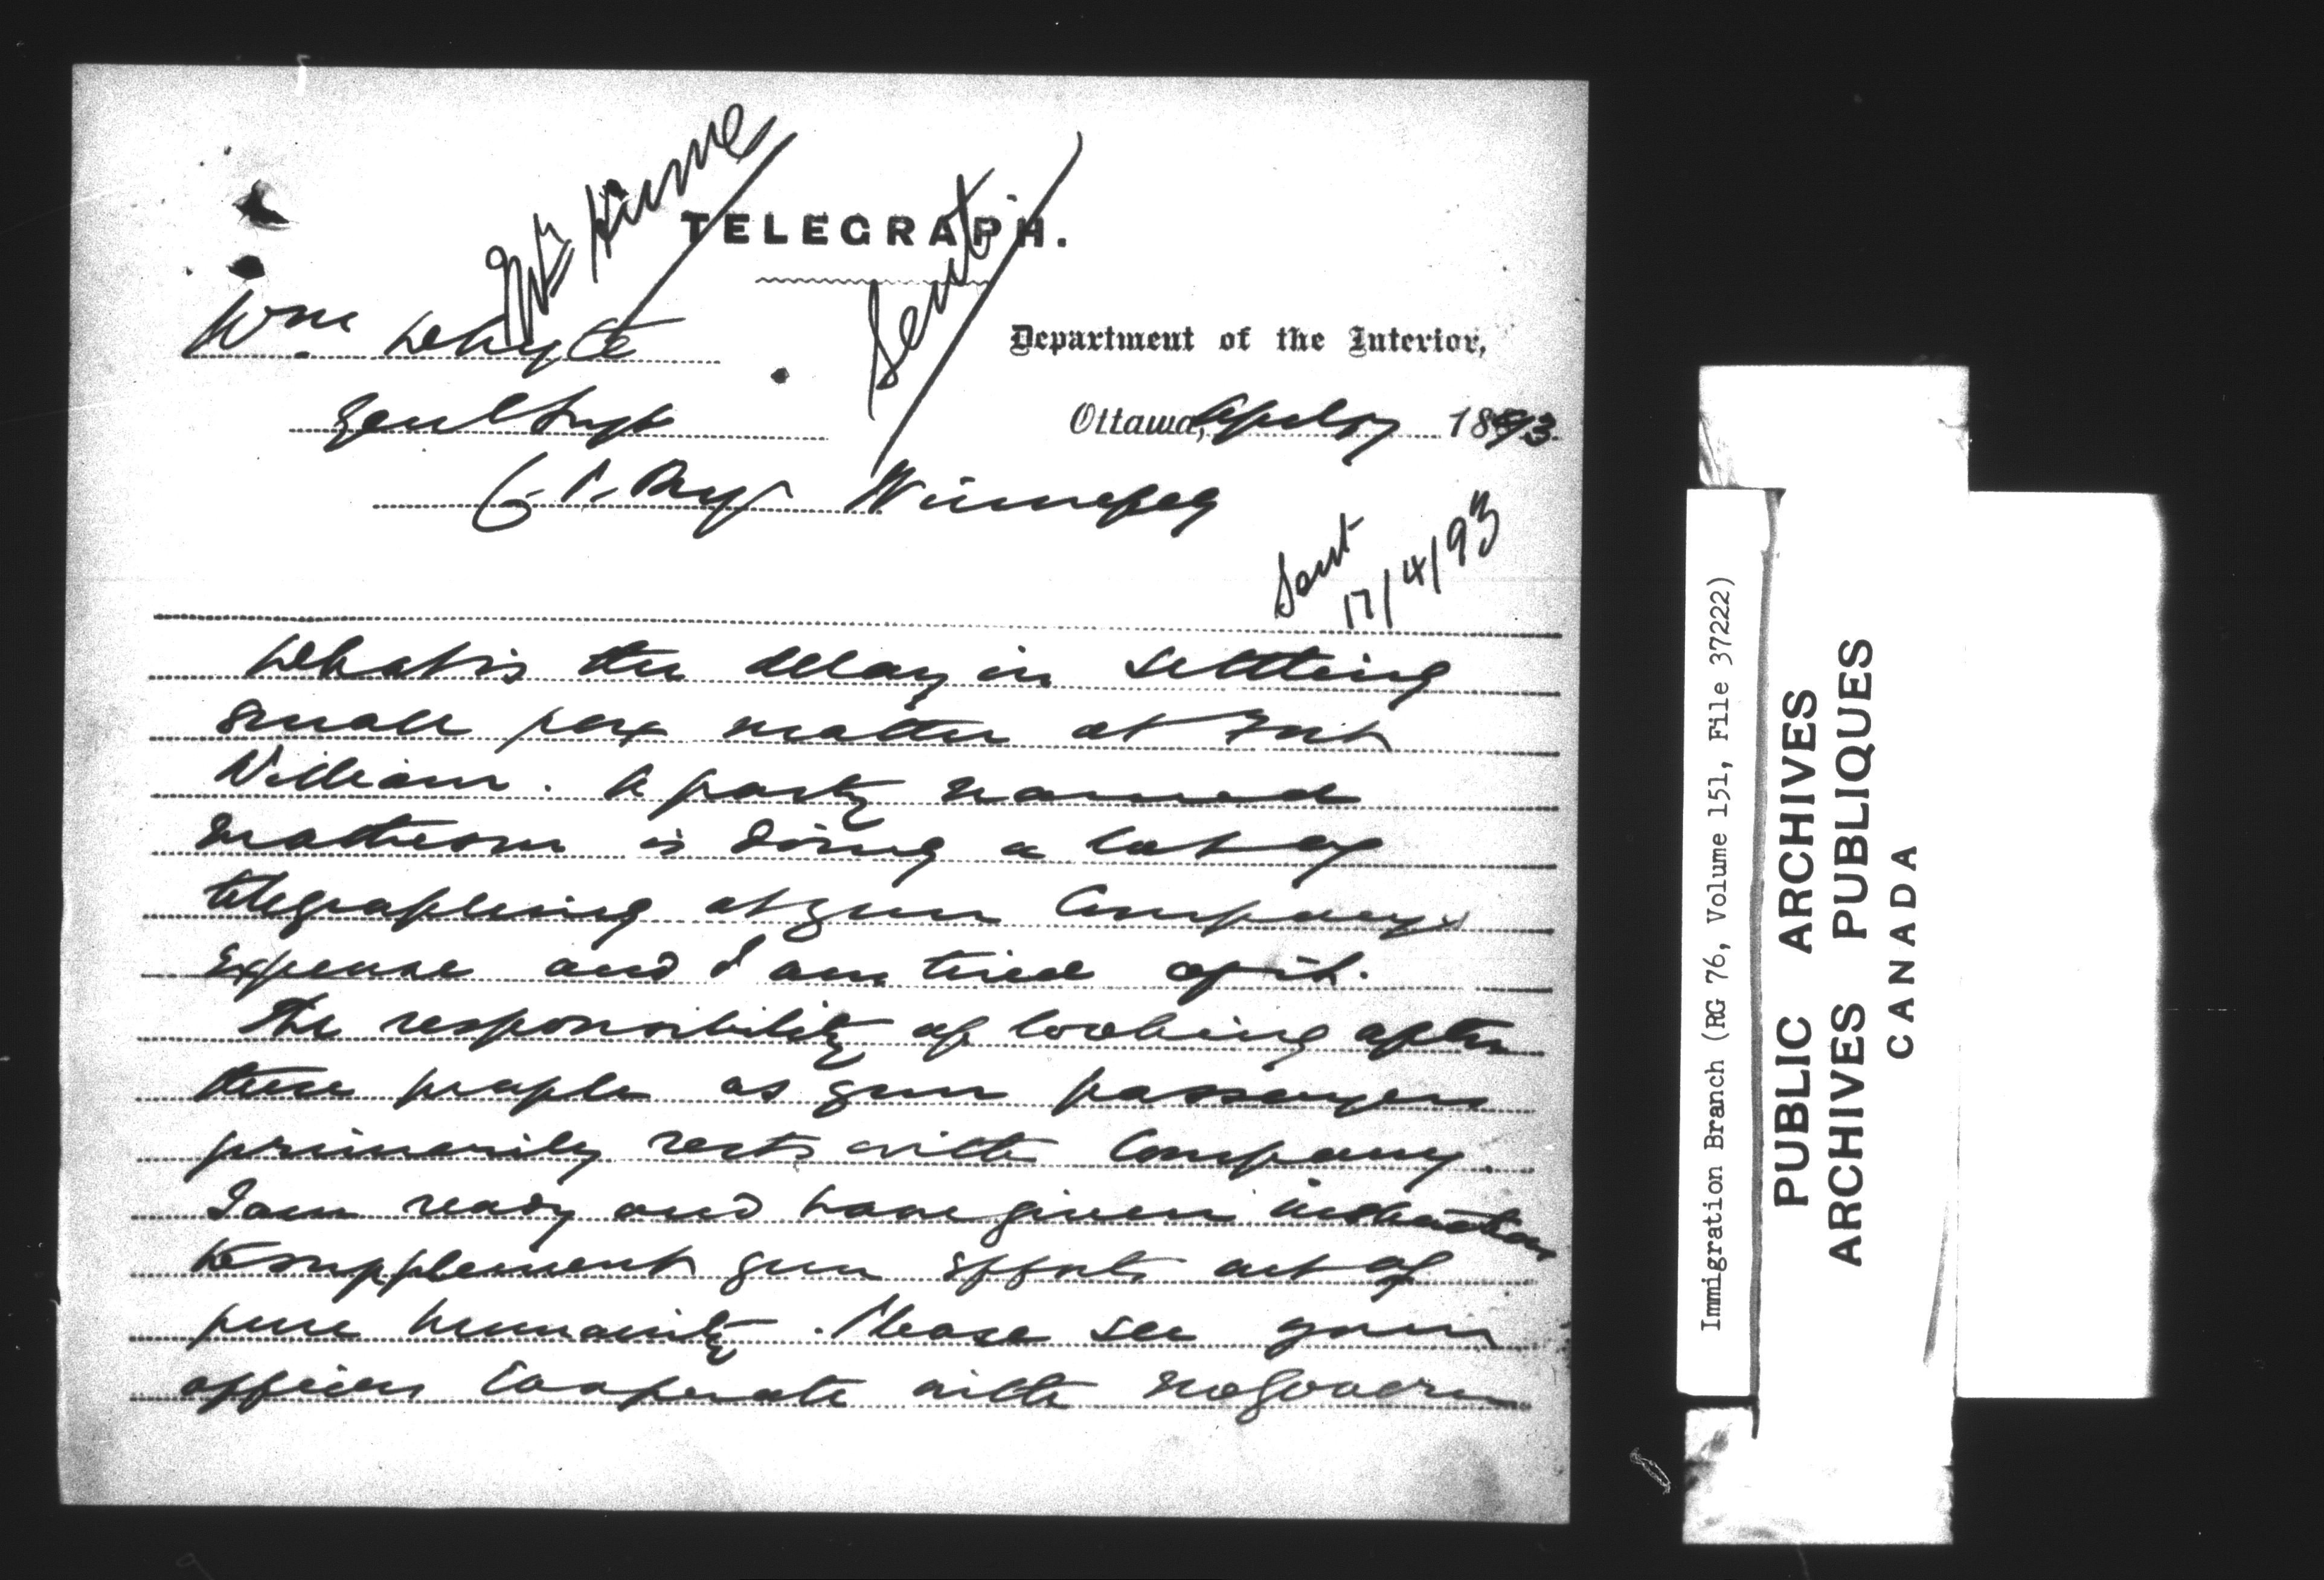 Mr Hume
TELEGRAPH.
Sent
Wm Whyte
Department of the Interior,
Genl Supt
Ottawa, April 17 1893.
C. P. Ry Winnipeg
Sent
17/4/93
What is the delay in settling
small pox matter at Fort
William. A party named
Matheson is doing a lot of
telegraphing at your Companys
expense and I am tired of it.
The responsibility of looking after
these people as your passengers
primarily rests with Company.
I am ready and have given instruction
to supplement your efforts out of
pure humanity. Please see your
officers Cooperate with
Immigration Branch (RG 76, Volume 151, File 37222)
PUBLIC ARCHIVES
ARCHIVES PUBLIQUES
CANADA